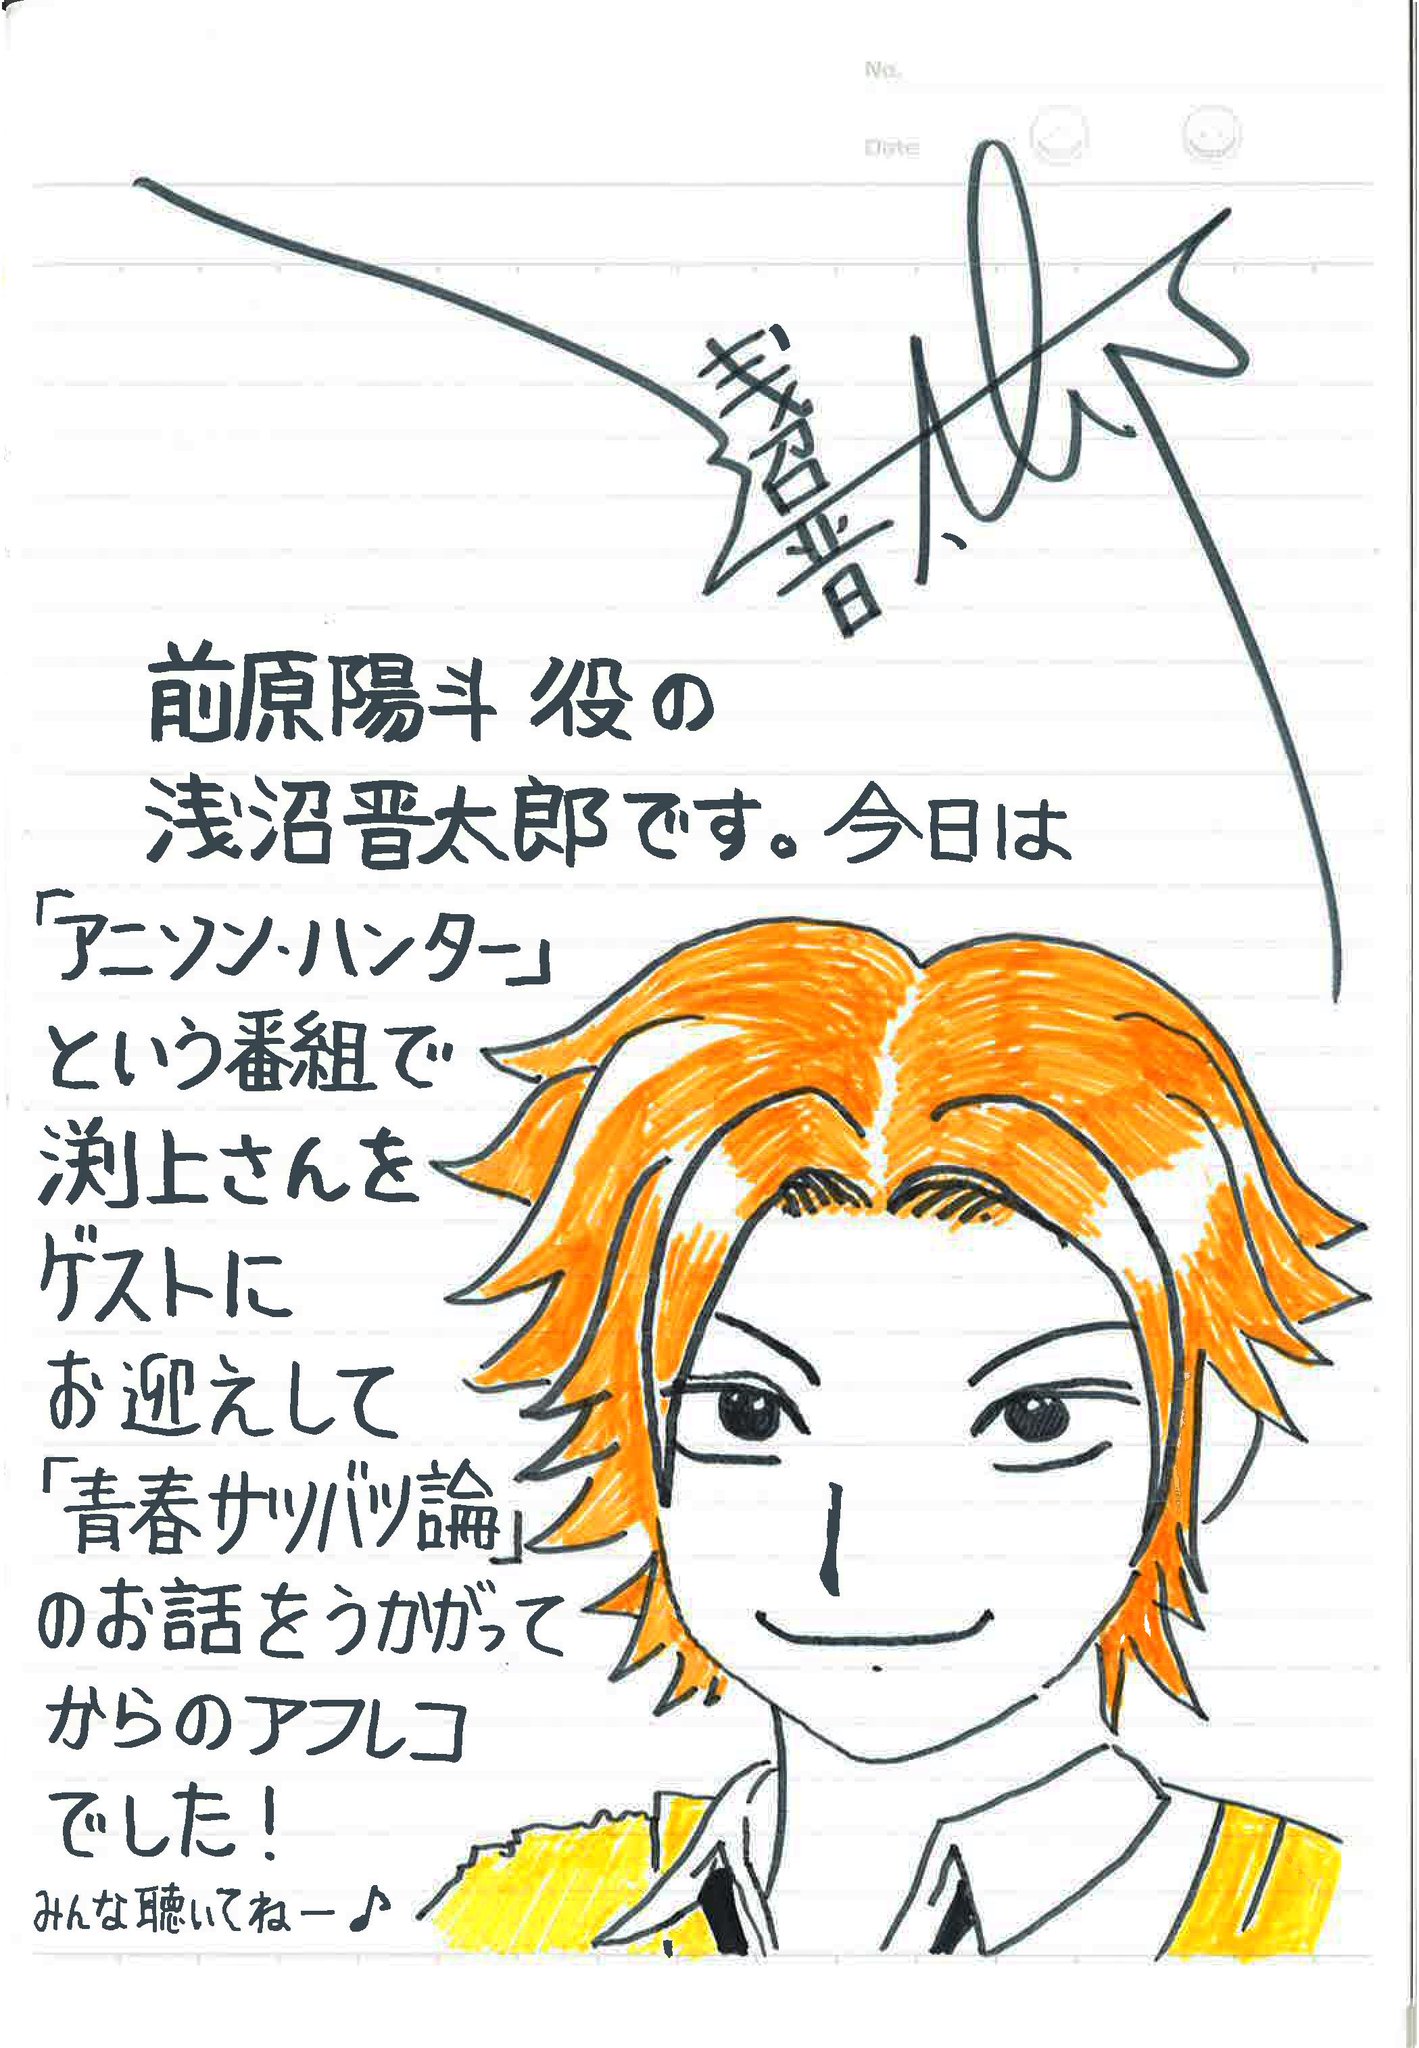 No.
Date
浅沼晋太
前原陽斗役の
浅沼晋太郎です。今日は
「アニソン・ハンター」
という番組で
渕上さんを
ゲストに
お迎えして
「青春サツバツ論」
のお話をうかがって
からのアフレコ
でした!
みんな聴いてねー♪